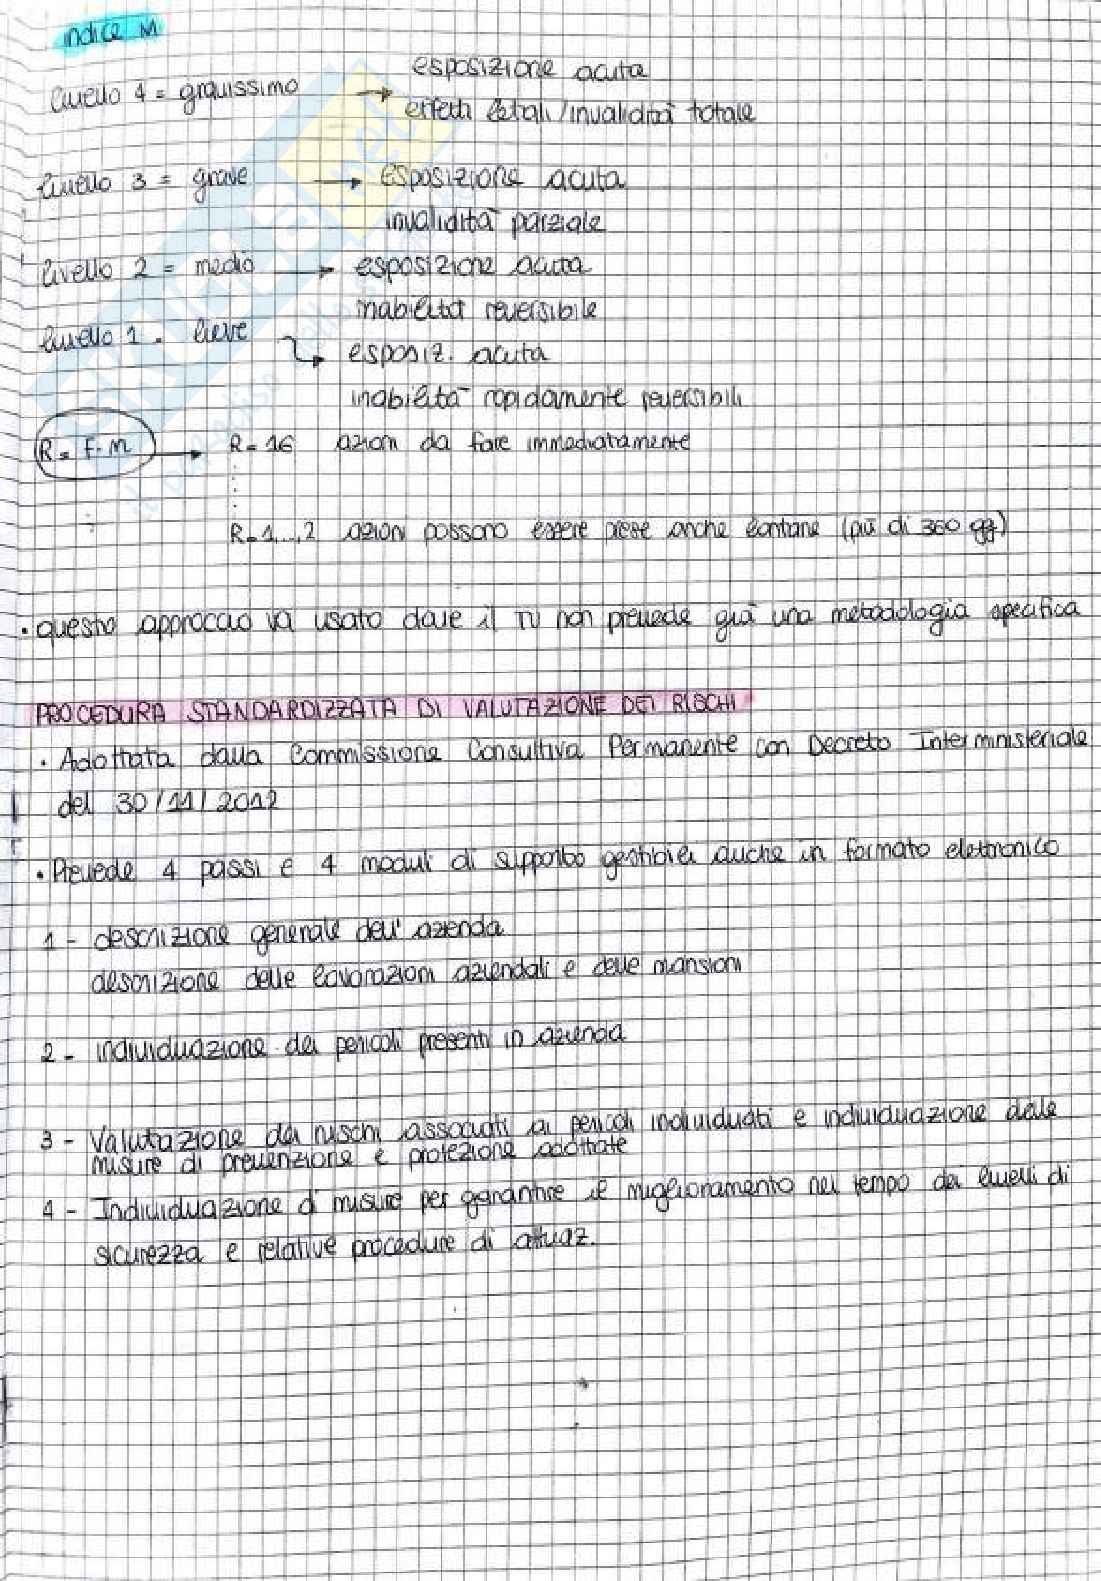 indice M
livello 4 = gravissimo → esposizione acuta
effetti letali/invalidità totale
livello 3 = grave → esposizione acuta
invalidità parziale
livello 2 = medio → esposizione acuta
inabilità reversibile
livello 1 = lieve → esposiz. acuta
inabilità rapidamente reversibili
R = F·M → R = 16 azioni da fare immediatamente
R=1,..,2 azioni possono essere prese anche lontane (più di 360 gg)
• questo approccio va usato dove il TU non prevede già una metodologia specifica
PROCEDURA STANDARDIZZATA DI VALUTAZIONE DEI RISCHI
• Adottata dalla Commissione Consultiva Permanente con Decreto Interministeriale
del 30/11/2012
• Prevede 4 passi e 4 moduli di supporto gestibili anche in formato elettronico
1 - descrizione generale dell'azienda
descrizione delle lavorazioni aziendali e delle mansioni
2 - individuazione dei pericoli presenti in azienda
3 - Valutazione dei rischi associati ai pericoli individuati e individuazione delle
misure di prevenzione e protezione adottate
4 - Individuazione di misure per garantire il miglioramento nel tempo dei livelli di
sicurezza e relative procedure di attuaz.